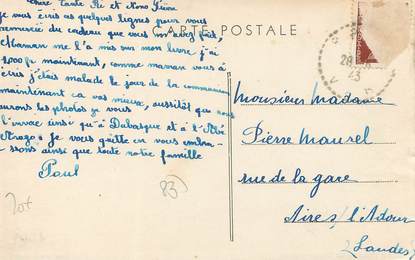 chère Tante Ré et Nono Pierre
je vous écris ces quelques lignes pour vous
remercie du cadeau que vous m'avez fait,
Maman me l'a mis sur mon livre, j'ai
1000 fr maintenant, comme maman vous a
écris j'étais malade le jour de la communion
maintenant ca vas mieux, aussitôt que nous
aurons les photos je vous
l'envoie ainsi qu'à Dabasque et à l'Abé
Arago. je vous quitte en vous embra-
ssons ainsi que toute notre famille
Paul
CARTE POSTALE
28
43
Monsieur Madame
Pierre Maurel
rue de la gare
Aires s/l'Adour
(Landes)
20x
83)